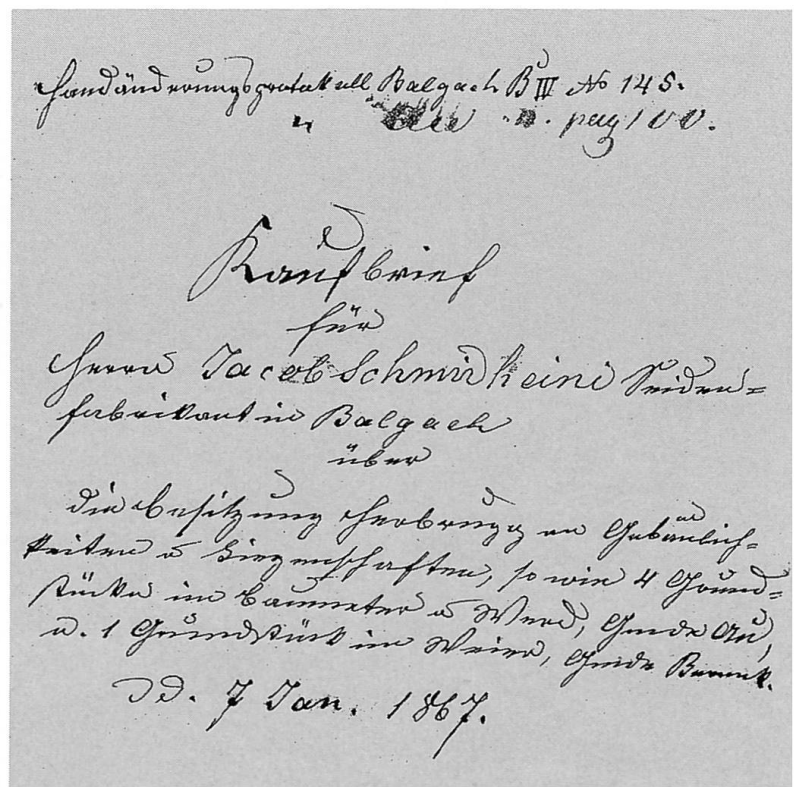 Handänderungsprotokoll Balgach B III No 145.
" Au ". pag 100.
Kaufbrief
für
Herrn Jacob Schmidheini Seiden=
fabrikant in Balgach
über
die Besitzung Heerbrugg an Gebäulich=
keiten & Liegenschaften, so wie 4 Grund=
stücke im & Werd, Gmde Au,
u. 1 Grundstück im Weier, Gmde Bernek.
dd. 7 Jan. 1867.